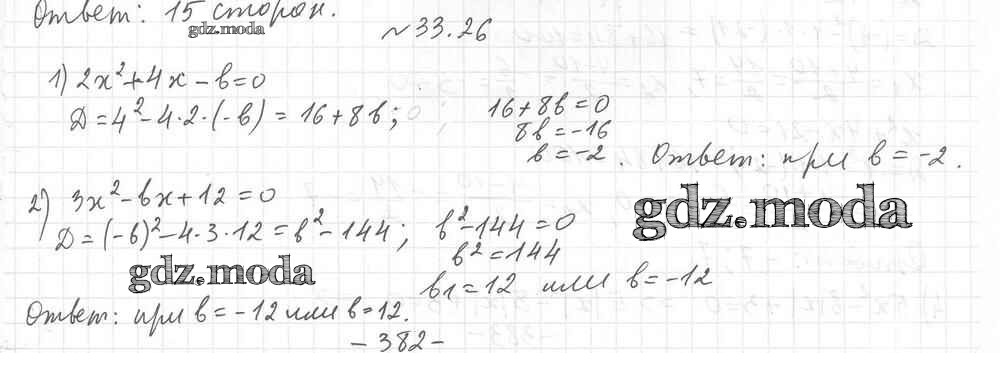 Ответ: 15 сторон.
gdz.moda
№33.26
1) 2x²+4x-b=0
D=4²-4·2·(-b)=16+8b;
16+8b=0
8b=-16
b=-2. Ответ: при b=-2.
2) 3x²-bx+12=0
D=(-b)²-4·3·12=b²-144;
b²-144=0
b²=144
b1=12 или b=-12
gdz.moda
gdz.moda
Ответ: при b=-12 или b=12.
-382-